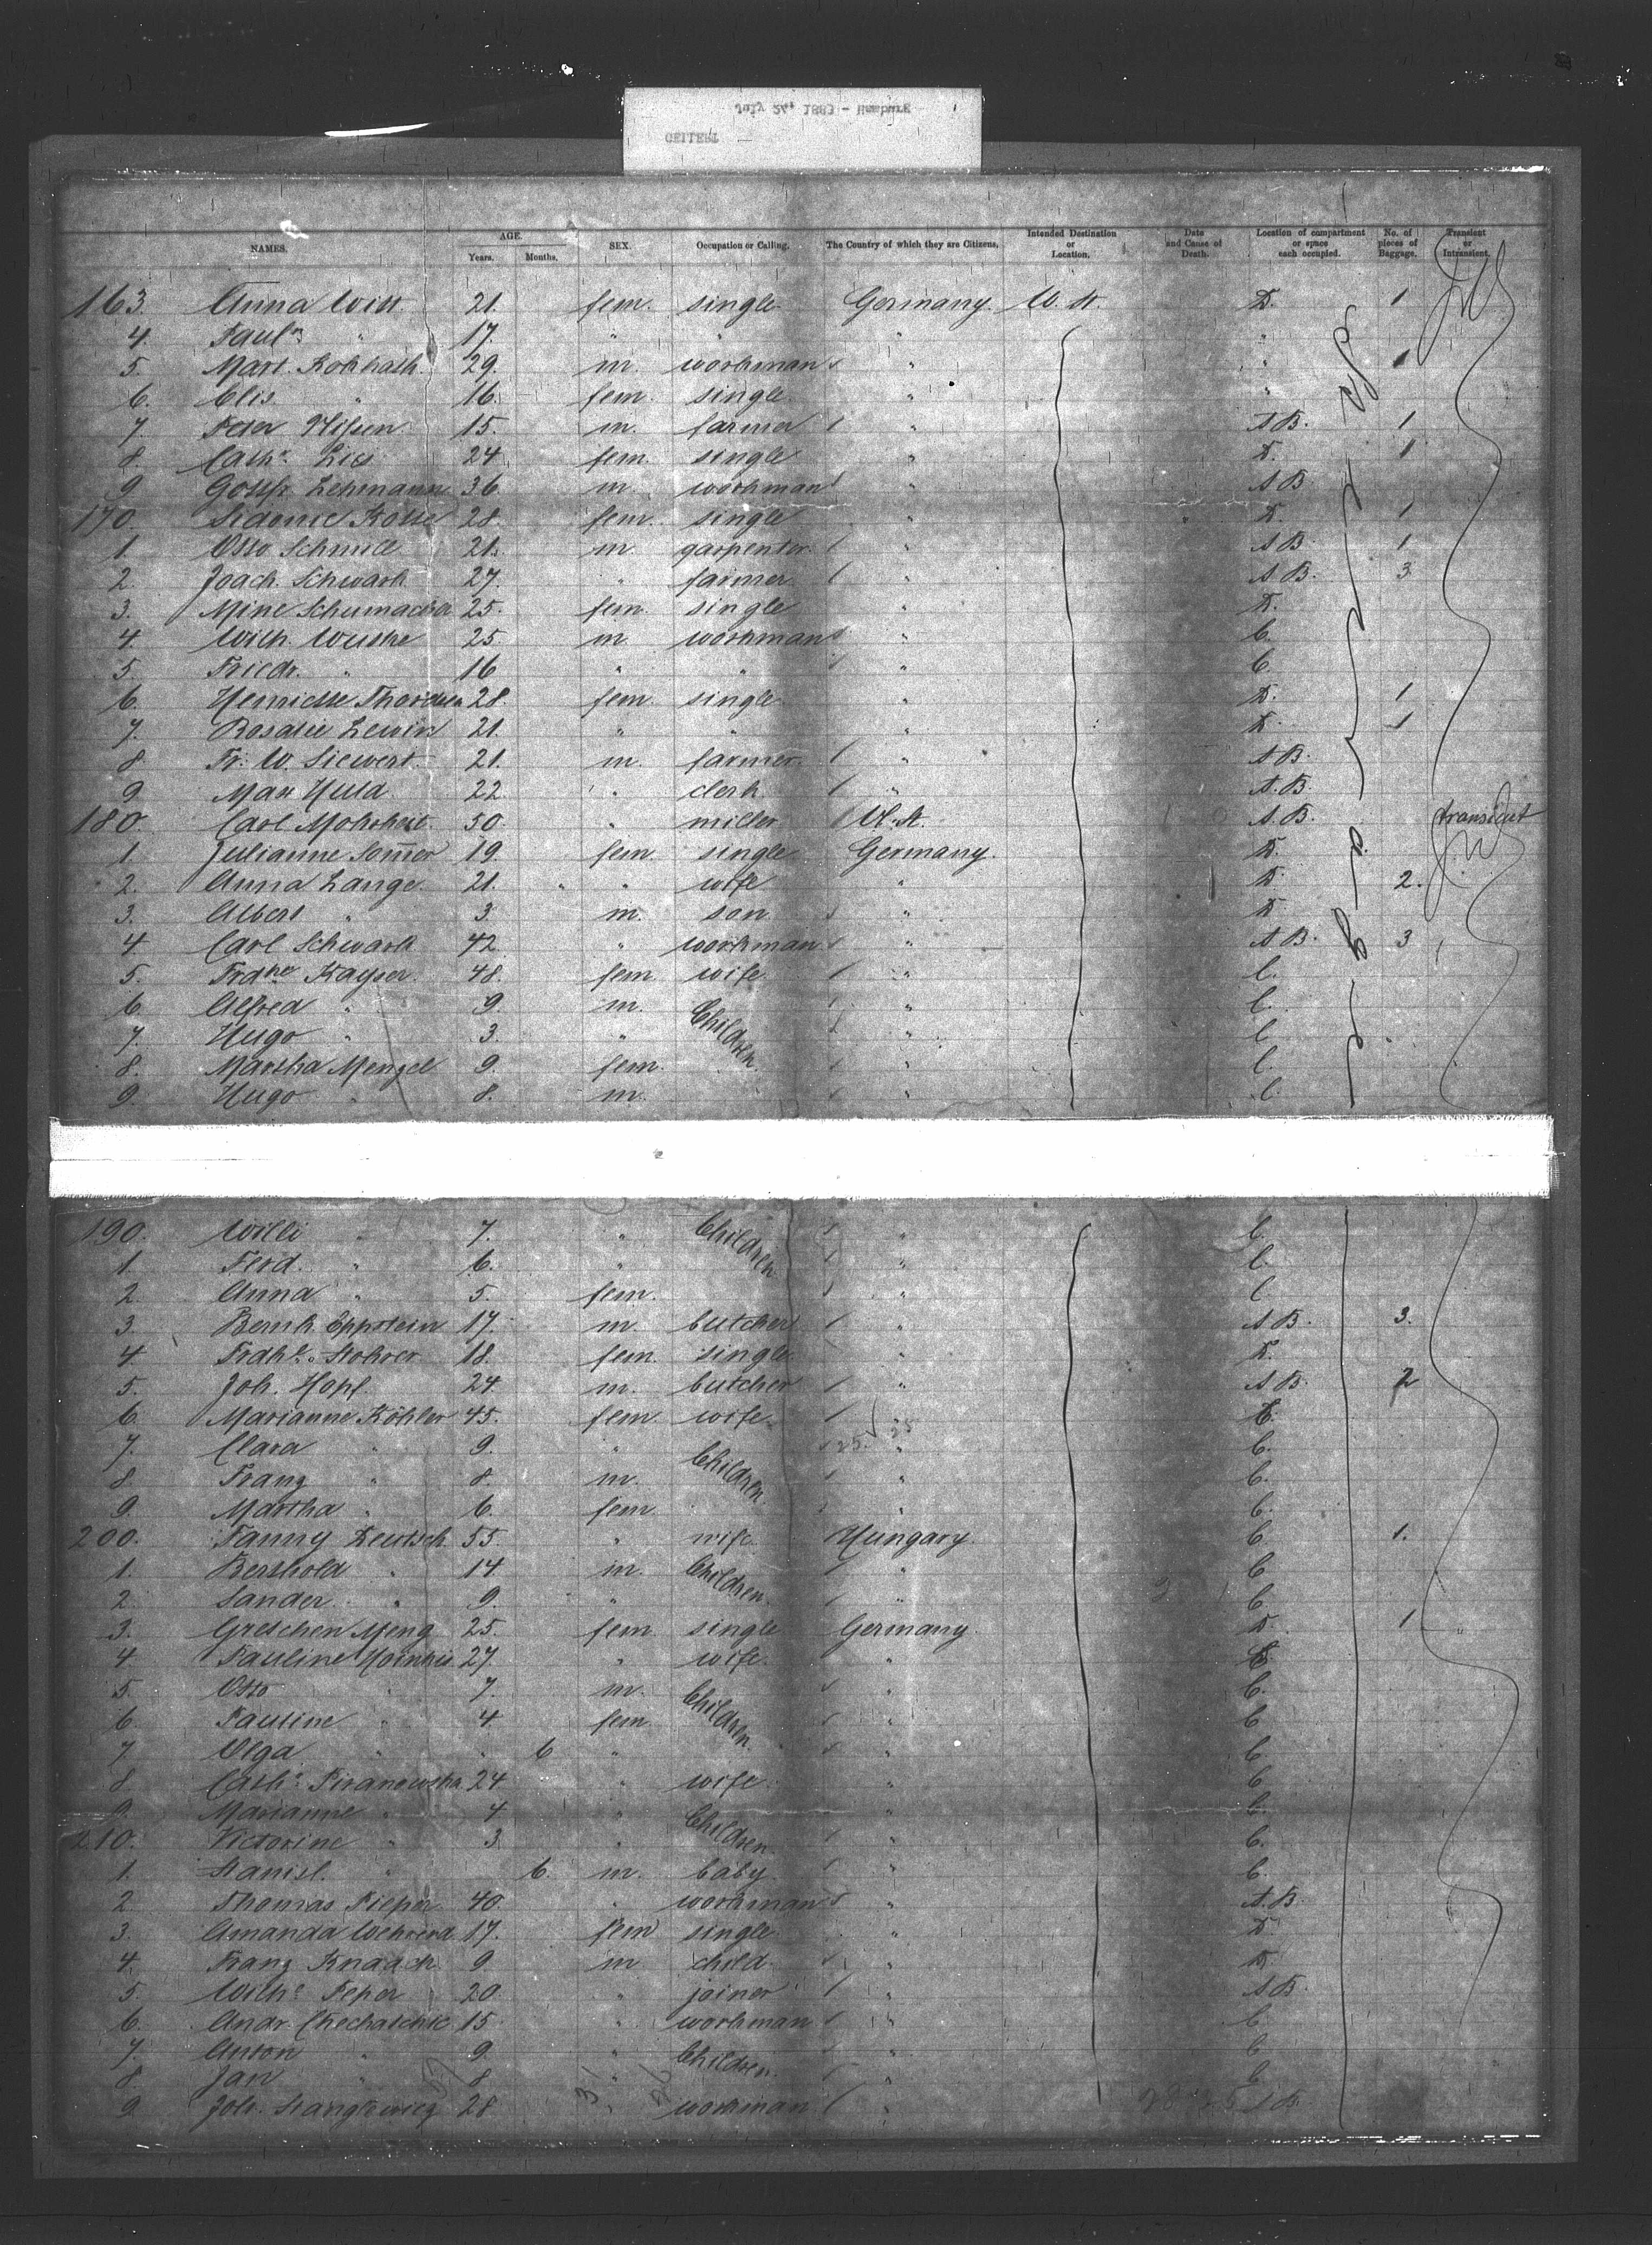 July 24, 1883 - Hamburg
GELLERT
NAMES. AGE. Years. Months. SEX. Occupation or Calling. The Country of which they are Citizens. Intended Destination or Location. Date and Cause of Death. Location of compartment or space each occupied. No. of pieces of Baggage. Transient or Intransient.
163. Anna Witt 21. fem. single Germany. U. St. D. 1
4. Paul " 17. " " " "
5. Mart. 29. m. workman " " 1
6. Elis " 16. fem. single " "
7. Peter 15. m. farmer " A B. 1
8. Cath. 24 fem. single " D. 1
9. Gottfr. Lehmann 36 m. workman " A B
170. Sidonie 28. fem. single " D. 1
1. Otto 21. m. carpenter " A B 1
2. Joach. Schwark 27. " farmer " A. B. 3
3. Mine Schumacher 25. fem. single " D.
4. Wilh. 25 m workman " C.
5. Friedr. " 16 " " " C.
6. Henriette 28. fem single " D. 1
7. Rosalie Lewin 21. " " " D. 1
8. Fr. W. Siewert. 21. m. farmer " A B.
9. Max Huld 22 " clerk " A. B.
180. Carl 50. " miller U. St. A. B. transient
1. Julianne Som̄er 19. fem. single Germany. D.
2. Anna Lange. 21. " wife " D. 2.
3. Albert " 3. m. son " D
4. Carl Schwark 42 " workman " A B. 3
5. Frdke Kayser. 48. fem. wife " C.
6. Alfred " 9. m. Children " C.
7. Hugo " 3. " " C
8. Martha Menzel 9. fem. " C.
9. Hugo " 8. m. " C.
190. Willi " 7. " Children " C.
1. Ferd. " 6. " " C.
2. Anna " 5. fem. " C
3. Bernh. Eppstein 17. m. butcher " A B. 3.
4. Frdke. Stohrer 18. fem. single " D.
5. Joh. Hopf. 24. m. butcher " A B. 2
6. Marianne Köhler 45. fem. wife " C.
7. Clara " 9. " Children " C.
8. Franz " 8. m. " C.
9. Martha " 6. fem. " C.
200. Fanny 55 " wife Hungary. C. 1.
1. Berthold " 14 m. Children " C
2. Sander " 9. " " C.
3. Gretchen Meng 25. fem single Germany D. 1
4. Pauline 27. " wife. " C.
5. Otto " 7. m. Children " C.
6. Pauline " 4. fem " C
7. Olga " " 6 " " C
8. Cath. 24 " wife. " C
9. Marianne " 4 " Children " C.
210. Victorine " 3. " " C.
1. Stanisl. " 6. m. baby. " C
2. Thomas Pieper 40. " workman " A. B.
3. Amanda 17. fem single " D.
4. Franz Knaack 9 m child " D.
5. Wilh. 20 " joiner " A B.
6. Andr. 15. " workman " C.
7. Anton " 9. " Children " C
8. Jan " 8 " " C
9. Joh. 28 " workman " A B.